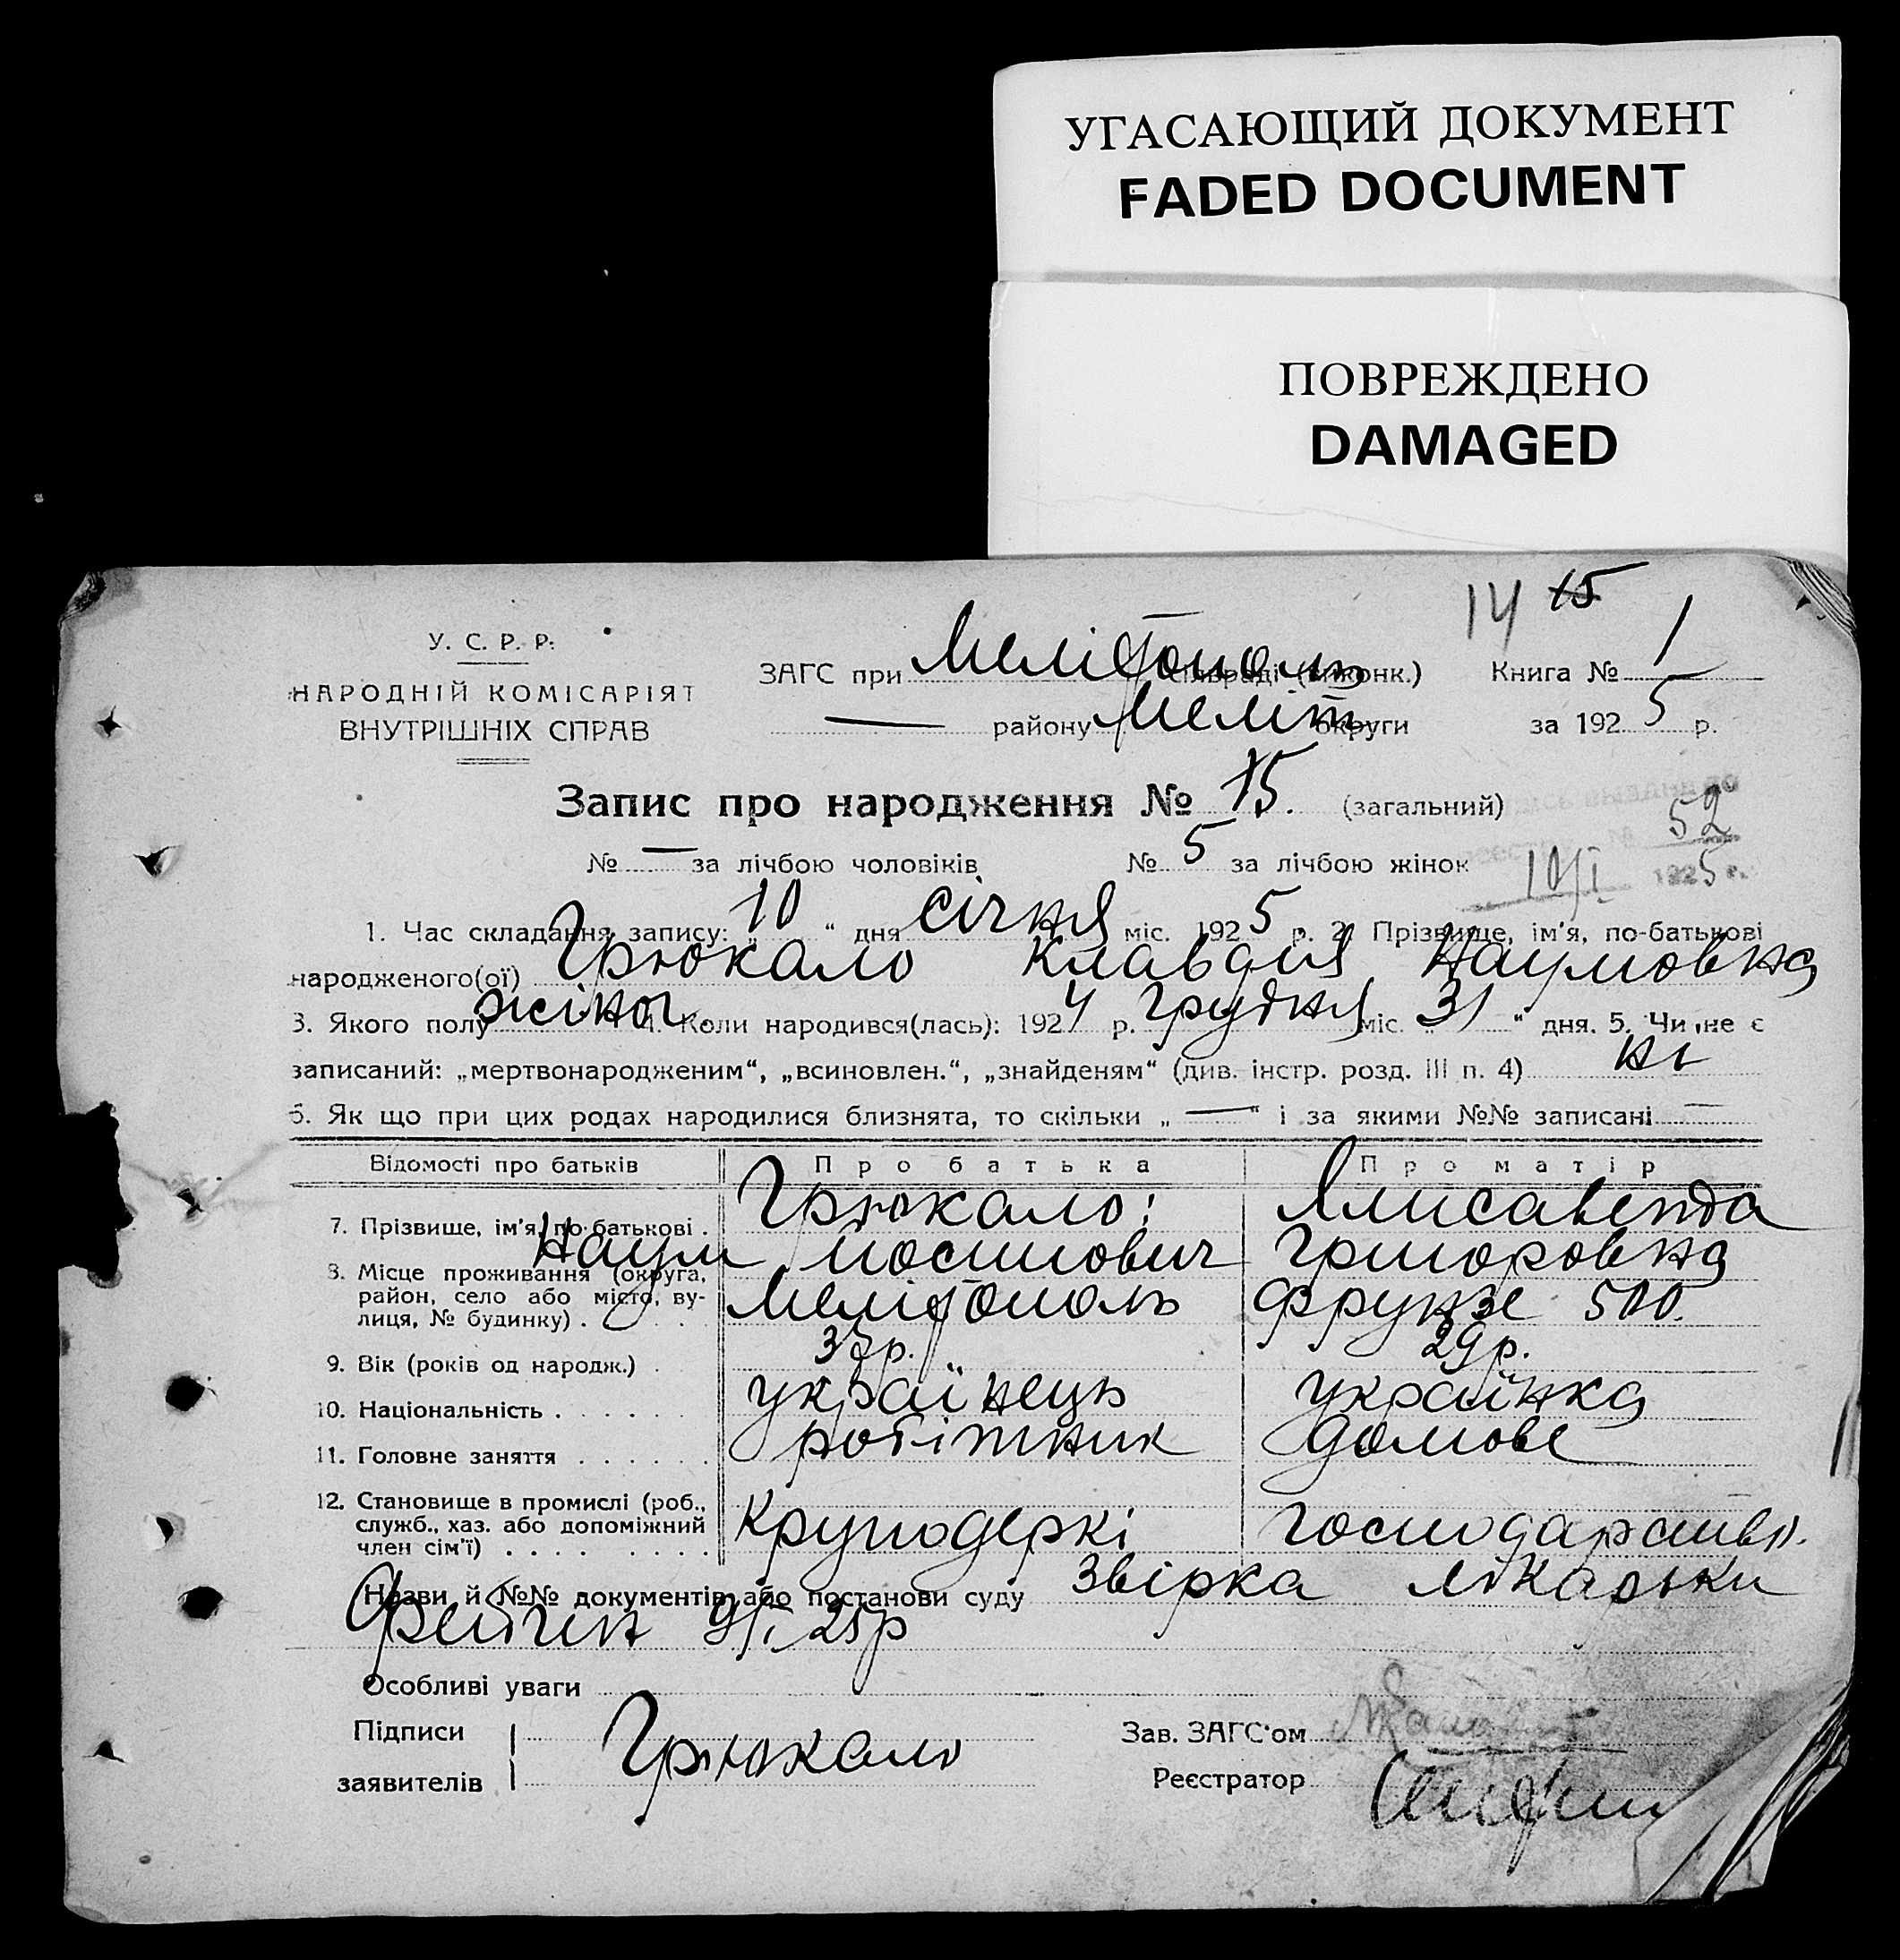 УГАСАЮЩИЙ ДОКУМЕНТ
FADED DOCUMENT
ПОВРЕЖДЕНО
DAMAGED
14 15
У. С. Р. Р.
НАРОДНІЙ КОМІСАРІЯТ
ВНУТРІШНІХ СПРАВ
ЗАГС при Мелітополь сільраді (виконк.)
— району Меліт округи
Книга № 1
за 1925 р.
Запис про народження № 15. (загальний)
52
№ — за лічбою чоловіків № 5 за лічбою жінок
10/I 1925 г.
1. Час складання запису: „10“ дня січня міс. 1925 р. 2. Прізвище, ім'я, по-батькові
народженого(ої) Грюкало Клавдія Наумовна
3. Якого полу жіноч. 4. Коли народився(лась): 1924 р. грудня міс. 31“ дня. 5. Чи не є
записаний: „мертвонародженим“, „всиновлен.“, „знайденям“ (див. інстр. розд. III п. 4) ні
6. Як що при цих родах народилися близнята, то скільки „—“ і за якими №№ записані —
Відомості про батьків Про батька Про матір
7. Прізвище, ім'я, по-батькові . Грюкало: Наум Йосипович
Ялисавепта Григоровна
8. Місце проживання (округа,
район, село або місто, ву-
лиця, № будинку) . Мелітополь Фрунзе 500.
9. Вік (років од народж.) . 37р. 29р.
10. Національність . . . . . . українець українка
11. Головне заняття . . . . . . робітник домове
12. Становище в промислі (роб.,
служб., хаз. або допоміжний
член сім'ї) . . . . Круподеркі господарство.
Назви й №№ документів або постанови суду Звірка лікарьки
9/I 25р
Особливі уваги
Підписи
заявителів Грюкало
Зав. ЗАГС'ом
Реєстратор